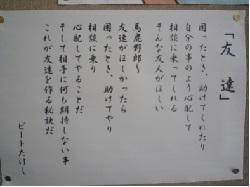 「友達」
困ったとき、助けてくれたり
自分の事のように心配して
相談に乗ってくれる
そんな友人がほしい
馬鹿野郎!
友達がほしかったら
困ったとき、助けてやり
相談に乗り
心配してやることだ
そして相手に何も期待しない事
これが友達を作る秘訣だ
ビートたけし